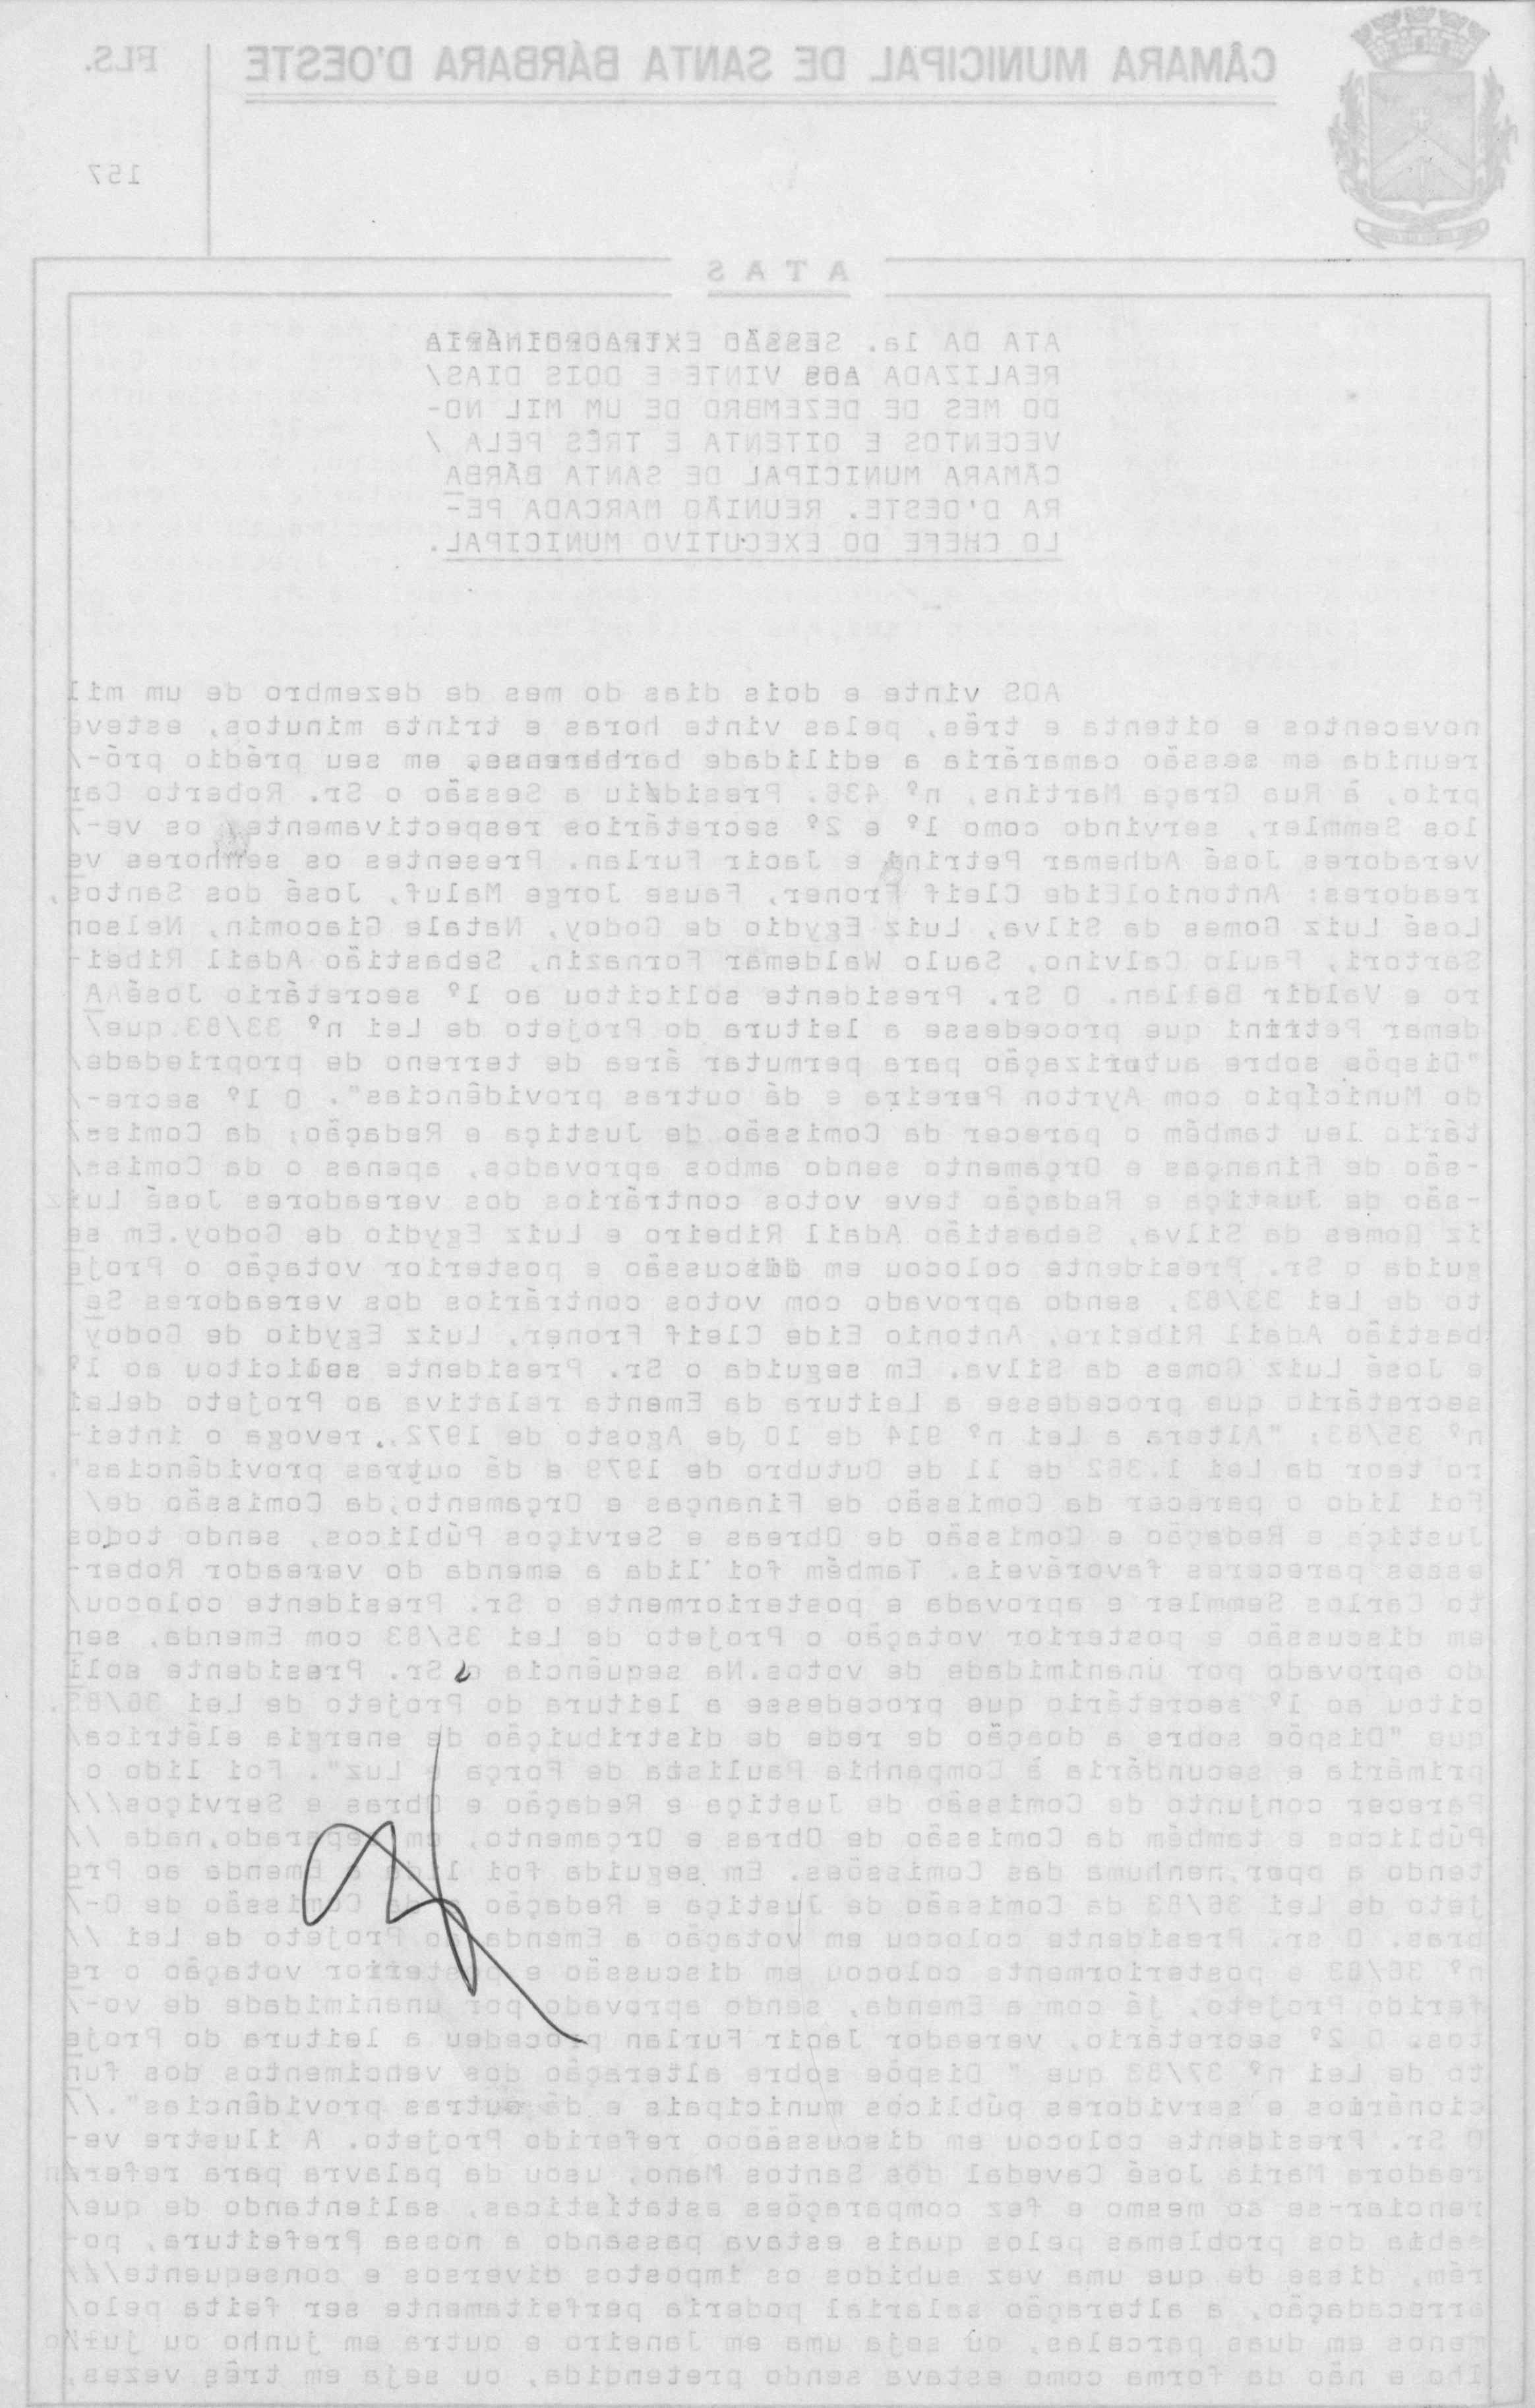 CÂMARA MUNICIPAL DE SANTA BÁRBARA D'OESTE
FLS.
157
ATAS
ATA DA 1a. SESSÃO EXTRAORDINÁRIA
REALIZADA AOS VINTE E DOIS DIAS/
DO MES DE DEZEMBRO DE UM MIL NO-
VECENTOS E OITENTA E TRÊS PELA /
CÂMARA MUNICIPAL DE SANTA BÁRBA
RA D'OESTE. REUNIÃO MARCADA PE-
LO CHEFE DO EXECUTIVO MUNICIPAL.
AOS vinte e dois dias do mes de dezembro de um mil
novecentos e oitenta e três, pelas vinte horas e trinta minutos, esteve
reunida em sessão camarária a edilidade barbarense, em seu prédio pró-/
prio, à Rua Graça Martins, nº 436. Presidiu a Sessão o Sr. Roberto Car
los Semmler, servindo como 1º e 2º secretários respectivamente, os ve-/
veradores José Adhemar Petrini e Jacir Furlan. Presentes os senhores ve
readores: Antonio Eide Cleif Froner, Fause Jorge Maluf, José dos Santos,
José Luiz Gomes da Silva, Luiz Egydio de Godoy, Natale Giacomin, Nelson
Sartori, Paulo Calvino, Saulo Waldemar Fornazin, Sebastião Adail Ribei-
ro e Valdir Bellan. O Sr. Presidente solicitou ao 1º secretário José A
demar Petrini que procedesse a leitura do Projeto de Lei nº 33/83.que/
"Dispõe sobre autorização para permutar área de terreno de propriedade/
do Município com Ayrton Pereira e dá outras providências". O 1º secre-/
tário leu também o parecer da Comissão de Justiça e Redação; da Comiss-/
-são de Finanças e Orçamento sendo ambos aprovados, apenas o da Comiss/
-são de Justiça e Redação teve votos contrários dos vereadores José Luiz
iz Gomes da Silva, Sebastião Adail Ribeiro e Luiz Egydio de Godoy.Em se
guida o Sr. Presidente colocou em discussão e posterior votação o Proje
to de Lei 33/83, sendo aprovado com votos contrários dos vereadores Se
bastião Adail Ribeiro, Antonio Eide Cleif Froner, Luiz Egydio de Godoy
e José Luiz Gomes da Silva. Em seguida o Sr. Presidente solicitou ao 1º
secretário que procedesse a Leitura da Ementa relativa ao Projeto deLei
nº 35/83: "Altera a Lei nº 914 de 10 de Agosto de 1972, revoga o intei-
ro teor da Lei 1.362 de 11 de Outubro de 1979 e dá outras providências".
Foi lido o parecer da Comissão de Finanças e Orçamento,da Comissão de/
Justiça e Redação e Comissão de Obreas e Serviços Públicos, sendo todos
esses pareceres favoráveis. Também foi lida a emenda do vereador Rober-
to Carlos Semmler e aprovada e posteriormente o Sr. Presidente colocou/
em discussão e posterior votação o Projeto de Lei 35/83 com Emenda, sen
do aprovado por unanimidade de votos.Na sequência o Sr. Presidente soli
citou ao 1º secretário que procedesse a leitura do Projeto de Lei 36/83.
que "Dispõe sobre a doação de rede de distribuição de energia elétrica/
primária e secundária à Companhia Paulista de Força e Luz". Foi lido o
Parecer conjunto de Comissão de Justiça e Redação e Obras e Serviços///
Públicos e também da Comissão de Obras e Orçamento, em separado,nada //
tendo a opor,nenhuma das Comissões. Em seguida foi lida a Emenda ao Pro
jeto de Lei 36/83 da Comissão de Justiça e Redação e da Comissão de O-/
bras. O sr. Presidente colocou em votação a Emenda ao Projeto de Lei //
nº 36/83 e posteriormente colocou em discussão e posterior votação o re
ferido Projeto, já com a Emenda, sendo aprovado por unanimidade de vo-/
tos. O 2º secretário, vereador Jacir Furlan procedeu a leitura do Proje
to de Lei nº 37/83 que " Dispõe sobre alteração dos vencimentos dos fun
cionários e servidores públicos municipais e dá outras providências".//
O Sr. Presidente colocou em discussãooo referido Projeto. A ilustre ve-
readora Maria José Cavedal dos Santos Mano, usou da palavra para referen
renciar-se ao mesmo e fez comparações estatísticas, salientando de que/
sabia dos problemas pelos quais estava passando a nossa Prefeitura, po-
rém, disse de que uma vez subidos os impostos diversos e consequente//
arrecadação, a alteração salarial poderia perfeitamente ser feita pelo/
menos em duas parcelas, ou seja uma em Janeiro e outra em junho ou ju
lho e não da forma como estava sendo pretendida, ou seja em três vezes,